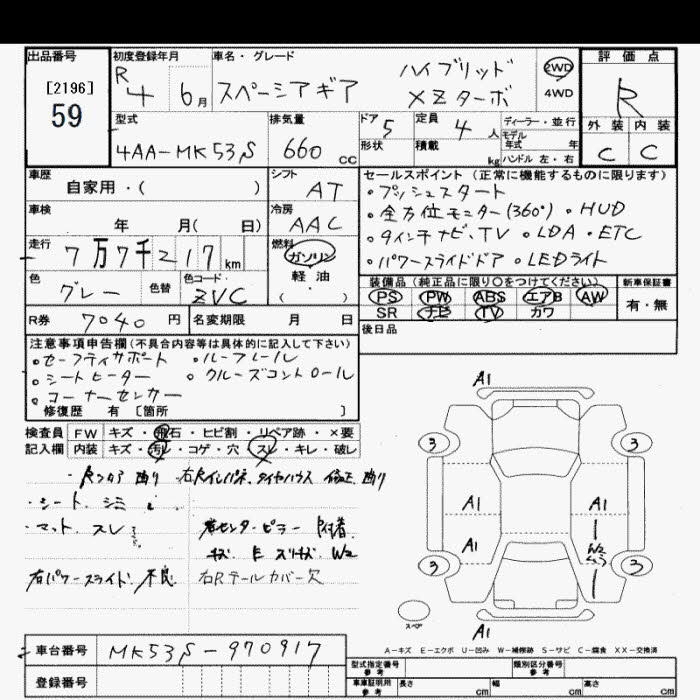 出品番号 初度登録年月 車名・グレード 評価点
[2196]
59
R4 6月 スペーシアギア ハイブリッド XZターボ 2WD 4WD R
型式 排気量 ドア 5 定員 4人 ディーラー・並行
形状 積載 kg モデル年式 年 外装 内装
4AA-MK53S 660cc ハンドル 左・右 C C
車歴 シフト セールスポイント(正常に機能するものに限ります)
自家用・( ) AT ・プッシュスタート
車検 冷房 ・全方位モニター(360°) ・HUD
年 月( 日) AAC ・9インチナビ、TV ・LDA ・ETC
走行 7万7千217km 燃料 ガソリン ・パワースライドドア ・LEDライト
軽・油
・( )
色 色替 色コード 装備品(純正品に限り○をつけてください) 新車保証書
グレー ZVC PS PW ABS エアB AW 有・無
SR ナビ TV カワ
R券 7040円 名変期限 月 日 後日品
注意事項申告欄(不具合内容等は具体的に記入して下さい)
・セーフティサポート ・ルーフレール
・シートヒーター ・クルーズコントロール
・コーナーセンサー
修復歴 有 [箇所 ]
検査員 FW キズ・飛石・ヒビ割・リペア跡・×要
記入欄 内装 キズ・汚レ・コゲ・穴・スレ・キレ・破レ
・シート シミ
・マット スレ
右パワースライド 不良 右Rテールカバー欠
A1
3 3
A1 A1
A1 W2
3 3
スペア
A1
A-キズ E-エクボ U-凹み W-補修跡 S-サビ C-腐食 XX-交換済
車台番号 MK53S-970917
登録番号
型式指定番号 参考 類別区分番号 参考
車庫証明用 参考 長さ cm 幅 cm 高さ cm